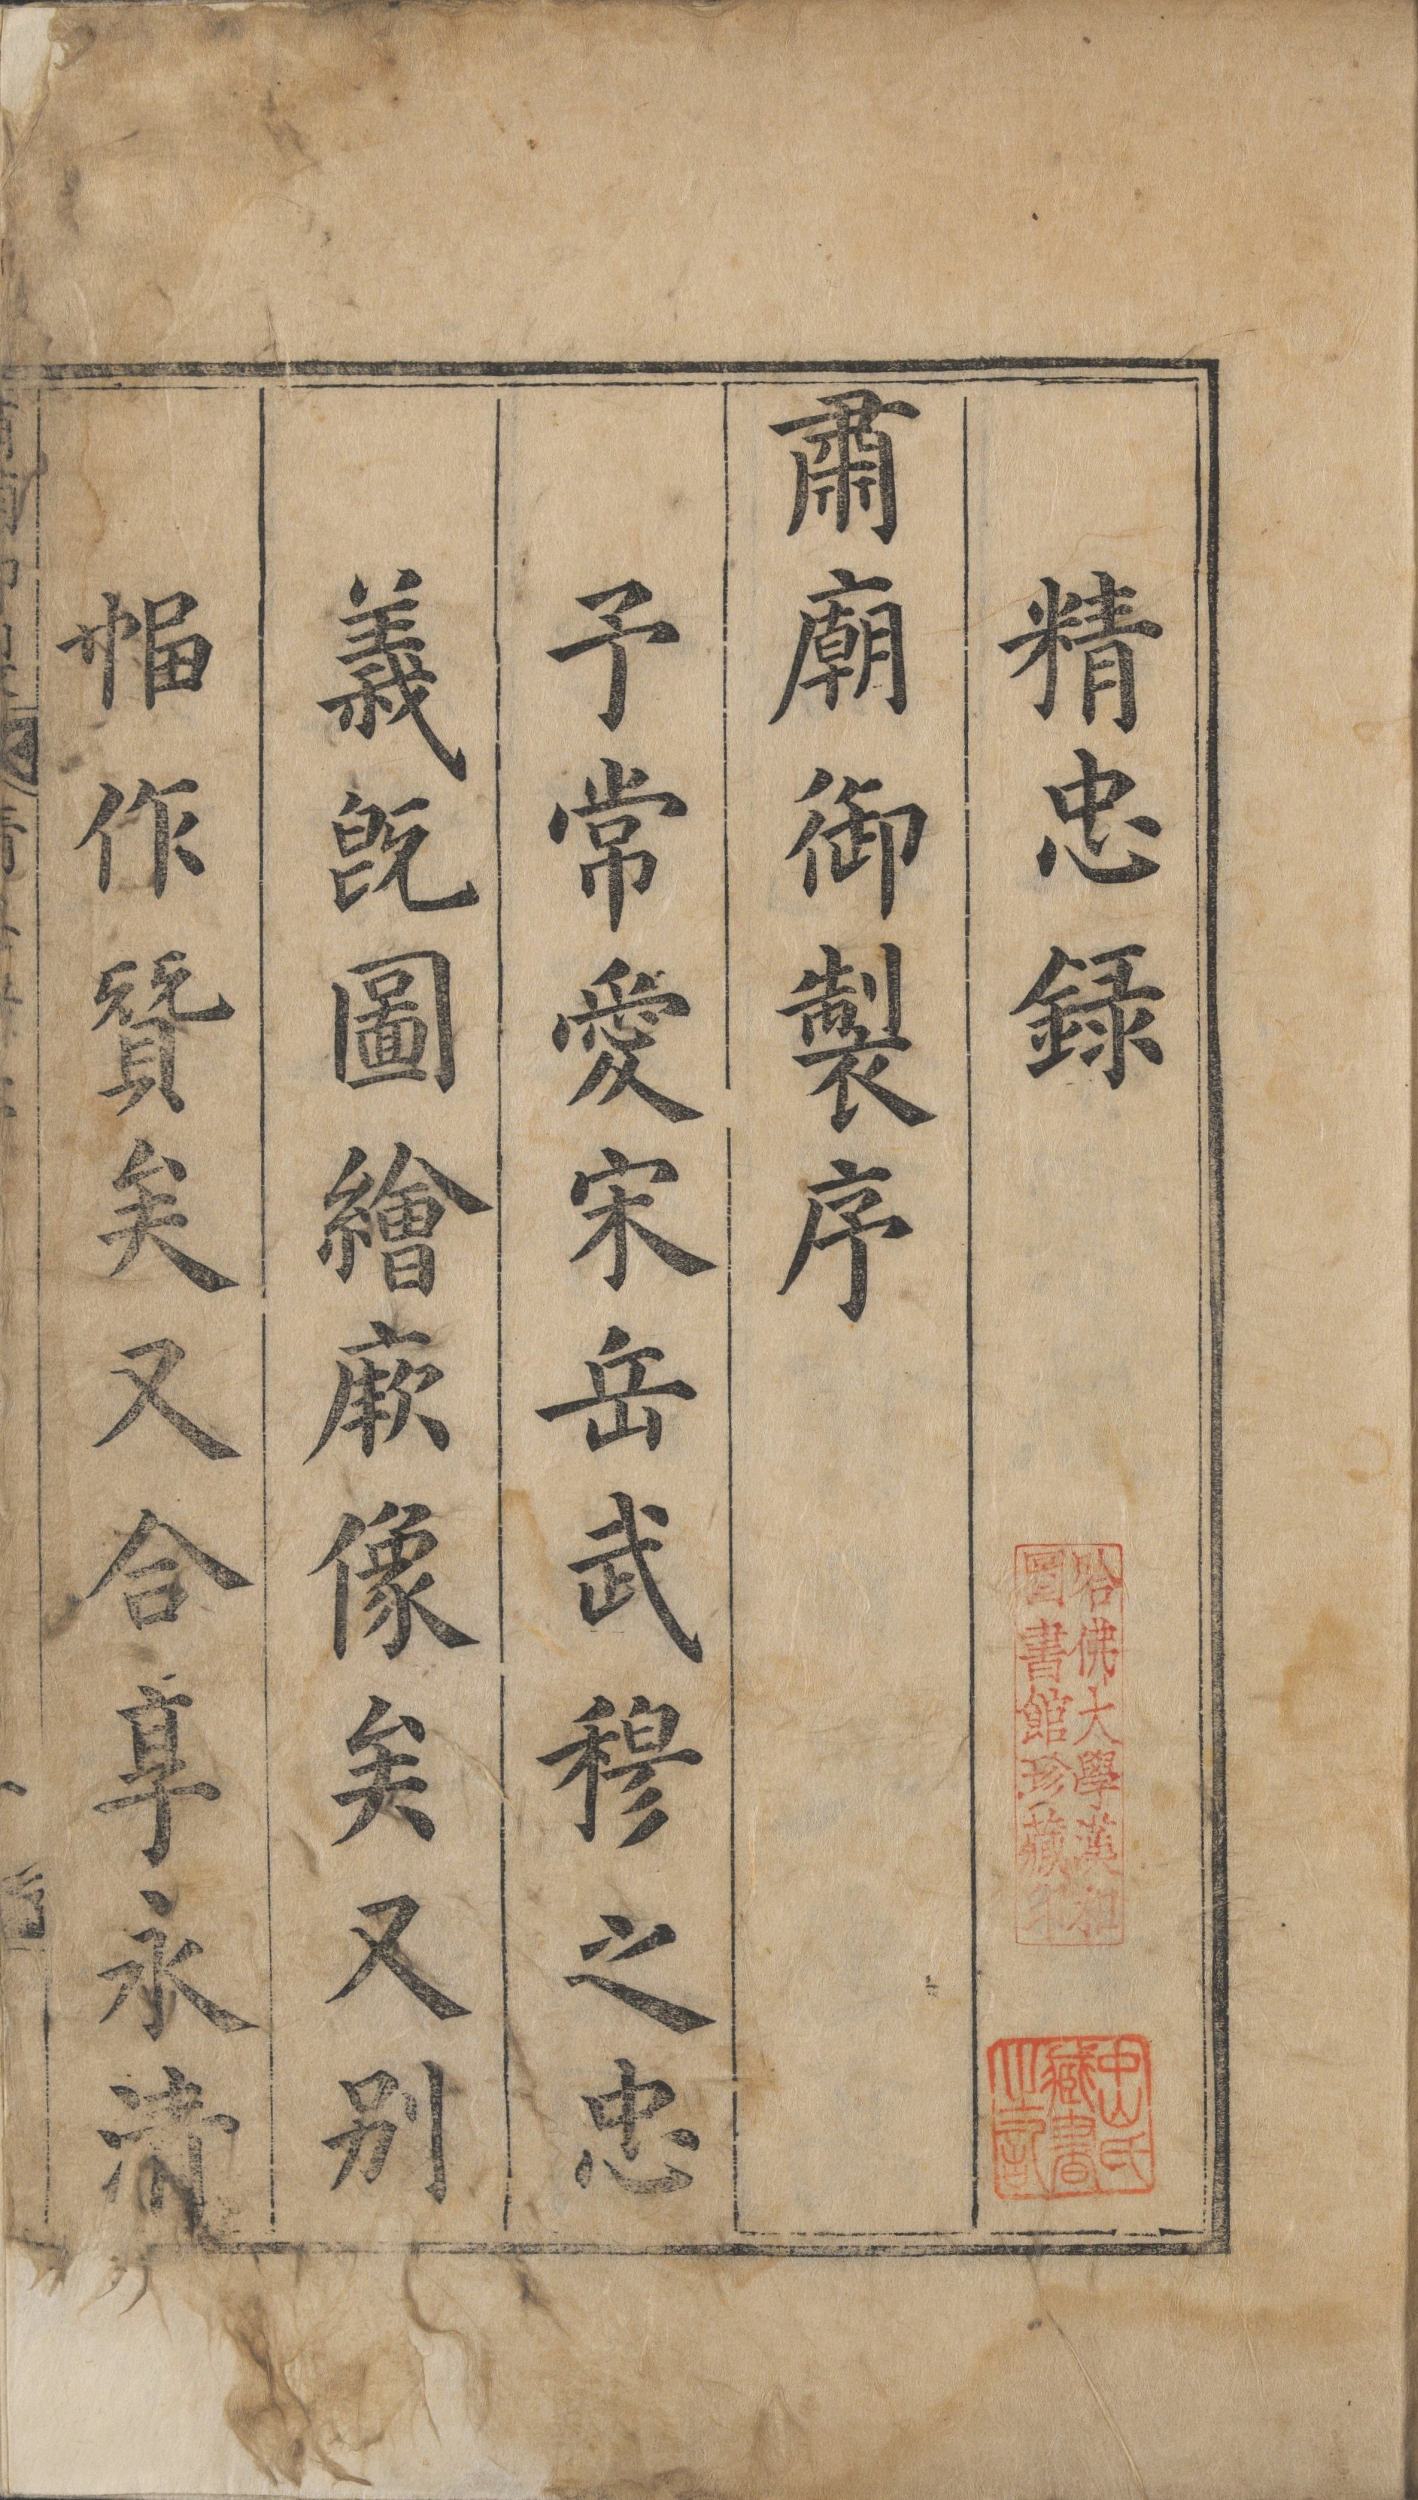 精忠録
肅廟御製序
予常愛宋岳武穆之忠
義既圖繪厥像矣又別
幅作賛矣又合享永清
哈佛大學漢和
圖書館珍藏印
中山氏
藏書
之記